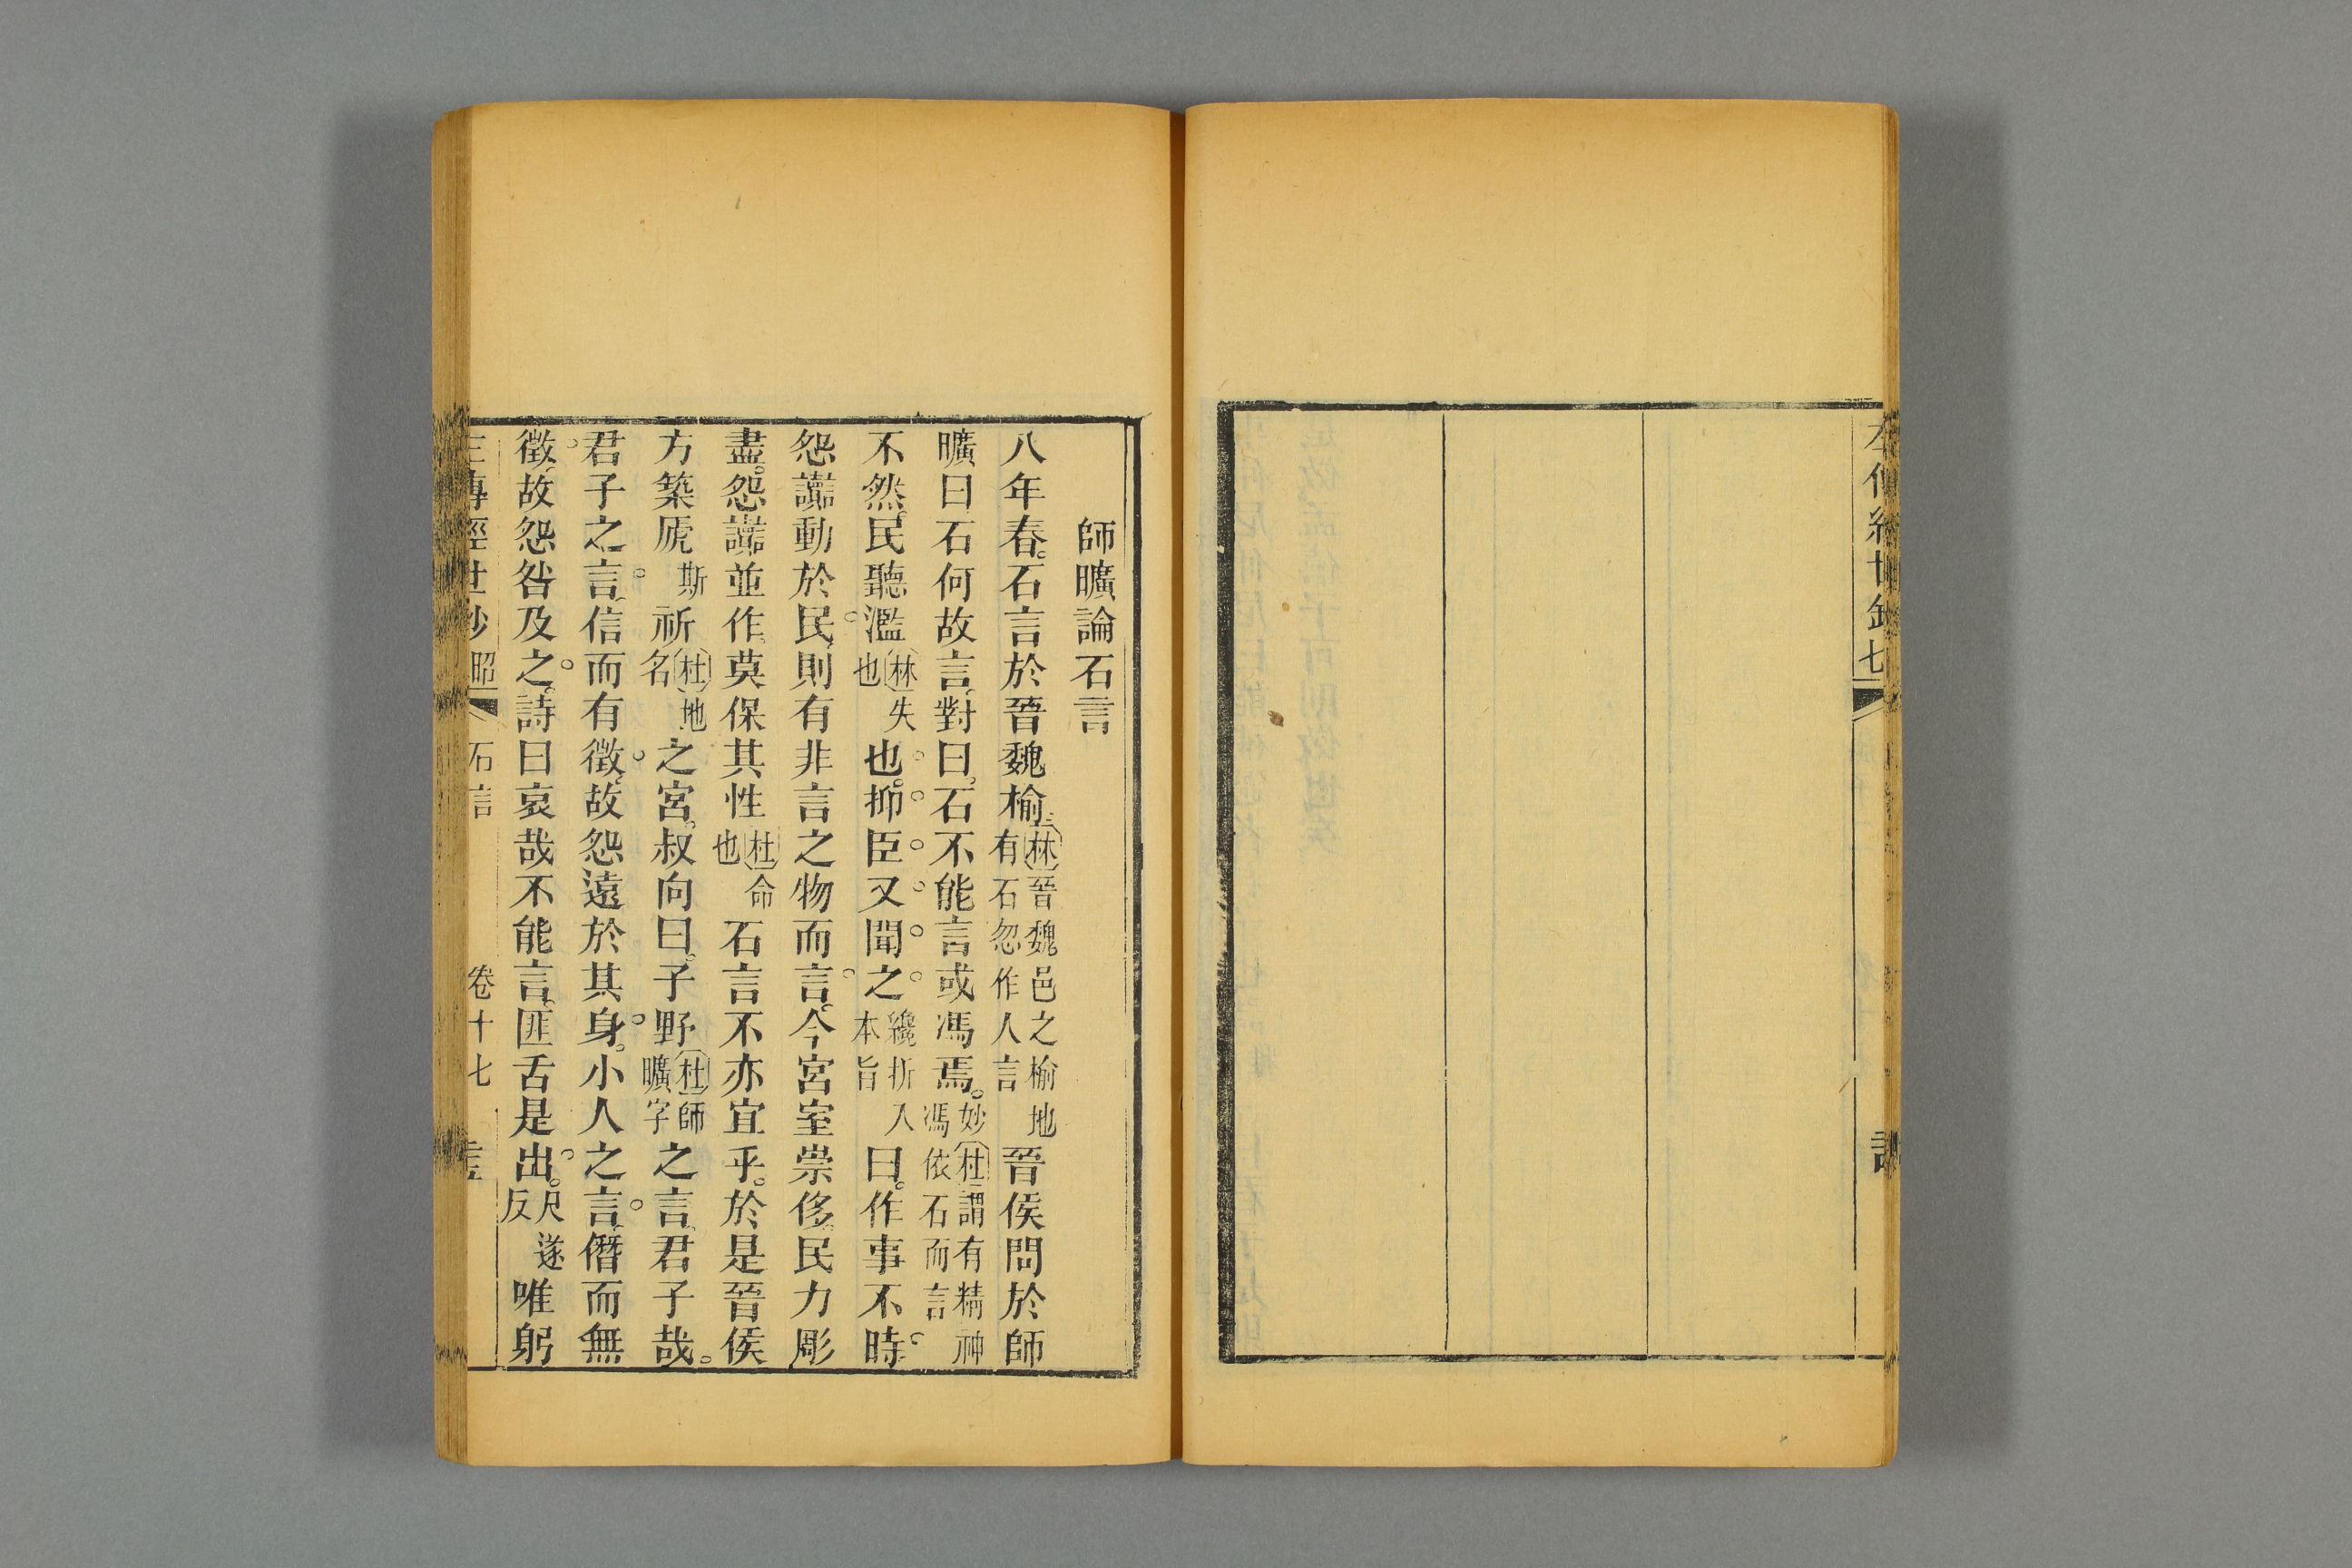 師曠論石言
八年春。石言於晉魏榆林晉魏邑之榆地有石忽作人言晉侯問於師
曠曰石何故言對曰石不能言或馮焉。妙杜謂有精神馮依石而言
不然民聽濫林失也也。抑臣又聞之纔折入本旨曰。作事不時
怨讟動於民則有非言之物而言。今宮室崇侈民力彫
盡。怨讟並作莫保其性杜命也石言不亦宜乎。於是晉侯
方築虒斯祈杜地名之宮。叔向曰子野杜師曠字之言君子哉。
君子之言信而有徵故怨遠於其身。小人之言僭而無
徵故怨咎及之詩曰哀哉不能言匪舌是出。尺遂反唯躬
昭 石言 卷十七